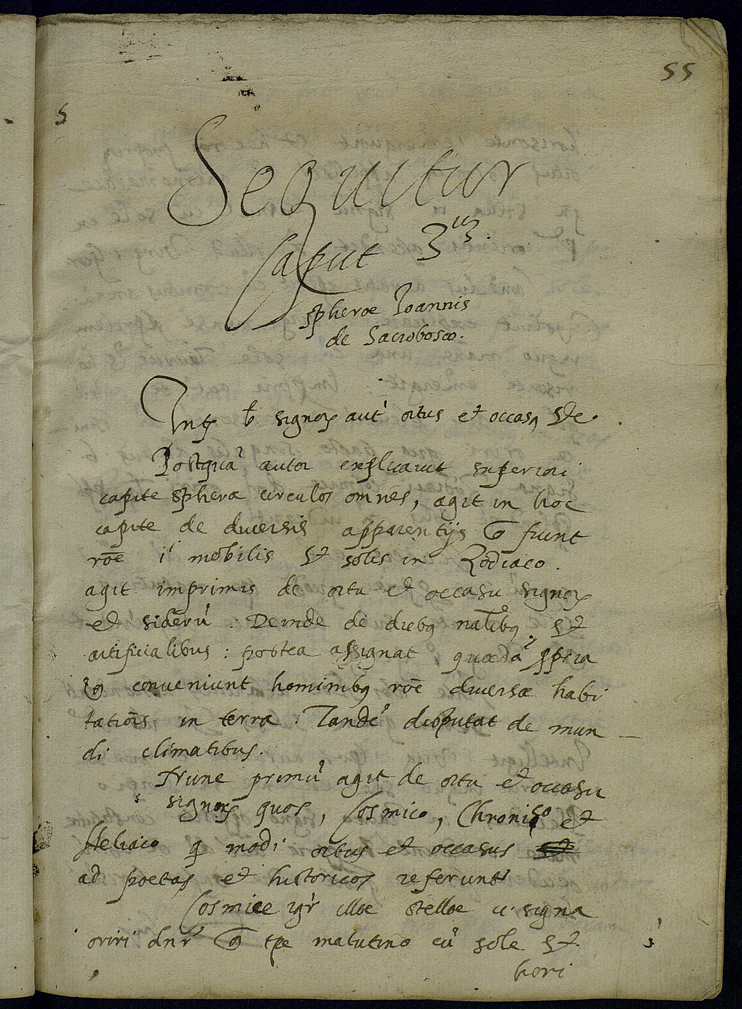 55
Sequitur
Caput 3um.
spherae Ioannis
de Sacrobosco.
signor aut ortus et occas
Postqua autor explicavit superiori
capite sphera circulos omnes, agit in hoc
capite de diversis apparentijs fiunt
roe mobilis et solis in Zodiaco.
agit imprimis de ortu et occasu signor
et sideru : Deinde de diebq natlibq et
artificialibus : postea assignat quaeda ppria
conveniunt hominibq roe diversae habi
tatiois in terra : Tande disputat de mun
di climatibus.
Nunc primu agit de ortu et occasu
signor quos, Cosmico, Chronico et
Heliaco modi ortus et occasus
ad poetas et historicos referunt
Cosmice igr illae stellae signa
oriri dnr tpe matutino cu sole et
hori